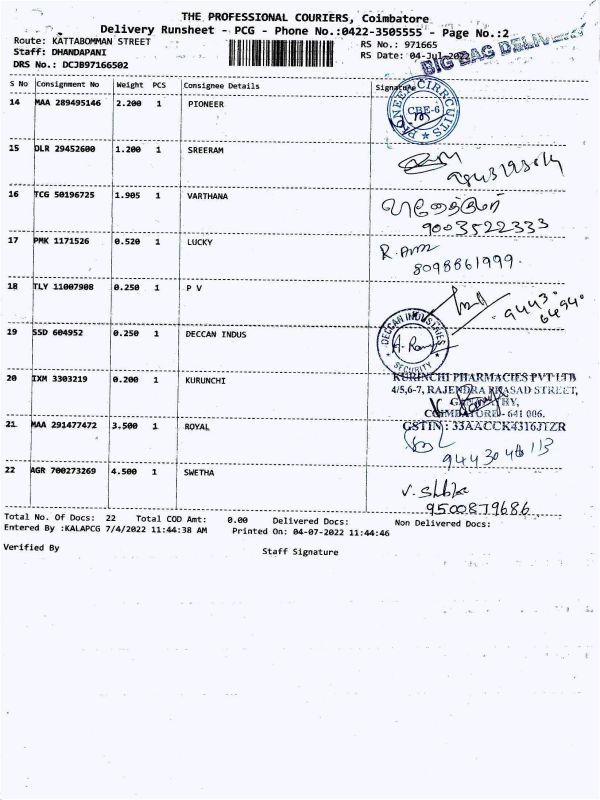 THE PROFESSIONAL COURIERS, Coimbatore
Delivery Runsheet - PCG - Phone No.:0422-3505555 - Page No.:2
Route: KATTABOMMAN STREET RS No.: 971665
Staff: DHANDAPANI RS Date: 04-Jul-2022
BIG BAG DELIVERY
DRS No.: DCJB97166502
S No Consignment No Weight PCS Consignee Details Signature
14 MAA 289495146 2.200 1 PIONEER
PIONEER CIRRCUITS CBE-6
15 DLR 29452600 1.200 1 SREERAM
16 TCG 50196725 1.905 1 VARTHANA
9003522333
17 PMK 1171526 0.520 1 LUCKY
8098861999.
18 TLY 11007908 0.250 1 P V
9443
6494
19 SSD 604952 0.250 1 DECCAN INDUS
DECCAN INDUSTRIES SECURITY
20 IXM 3303219 0.200 1 KURUNCHI
KURINCHI PHARMACIES PVT LTD
4/5,6-7, RAJENDRA PRASAD STREET,
COIMBATORE - 641 006.
GSTIN : 33AACCK4316J1ZR
21 MAA 291477472 3.500 1 ROYAL
22 AGR 700273269 4.500 1 SWETHA
9500879686
Total No. Of Docs: 22 Total COD Amt: 0.00 Delivered Docs: Non Delivered Docs:
Entered By :KALAPCG 7/4/2022 11:44:38 AM Printed On: 04-07-2022 11:44:46
Verified By Staff Signature